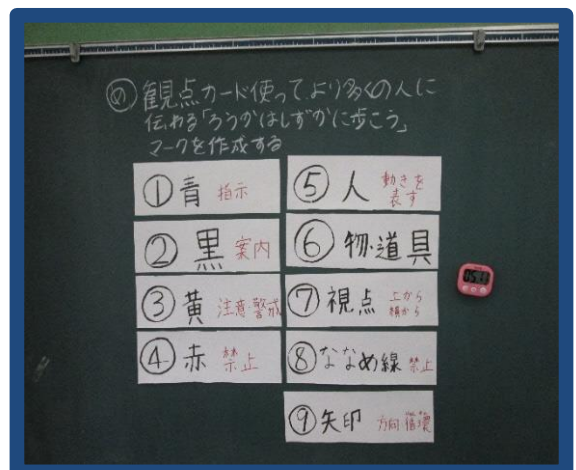 め 観点カード使ってより多くの人に
伝わる「ろうかはしずかに歩こう」
マークを作成する
① 青 指示
② 黒 案内
③ 黄 注意 警戒
④ 赤 禁止
⑤ 人 動きを
表す
⑥ 物・道具
⑦ 視点 上から
横から
⑧ ななめ線 禁止
⑨ 矢印 方向 循環